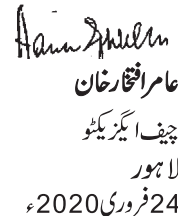 عامر افتخار خان
چیف ایگزیکٹو
لاہور
24 فروری 2020ء